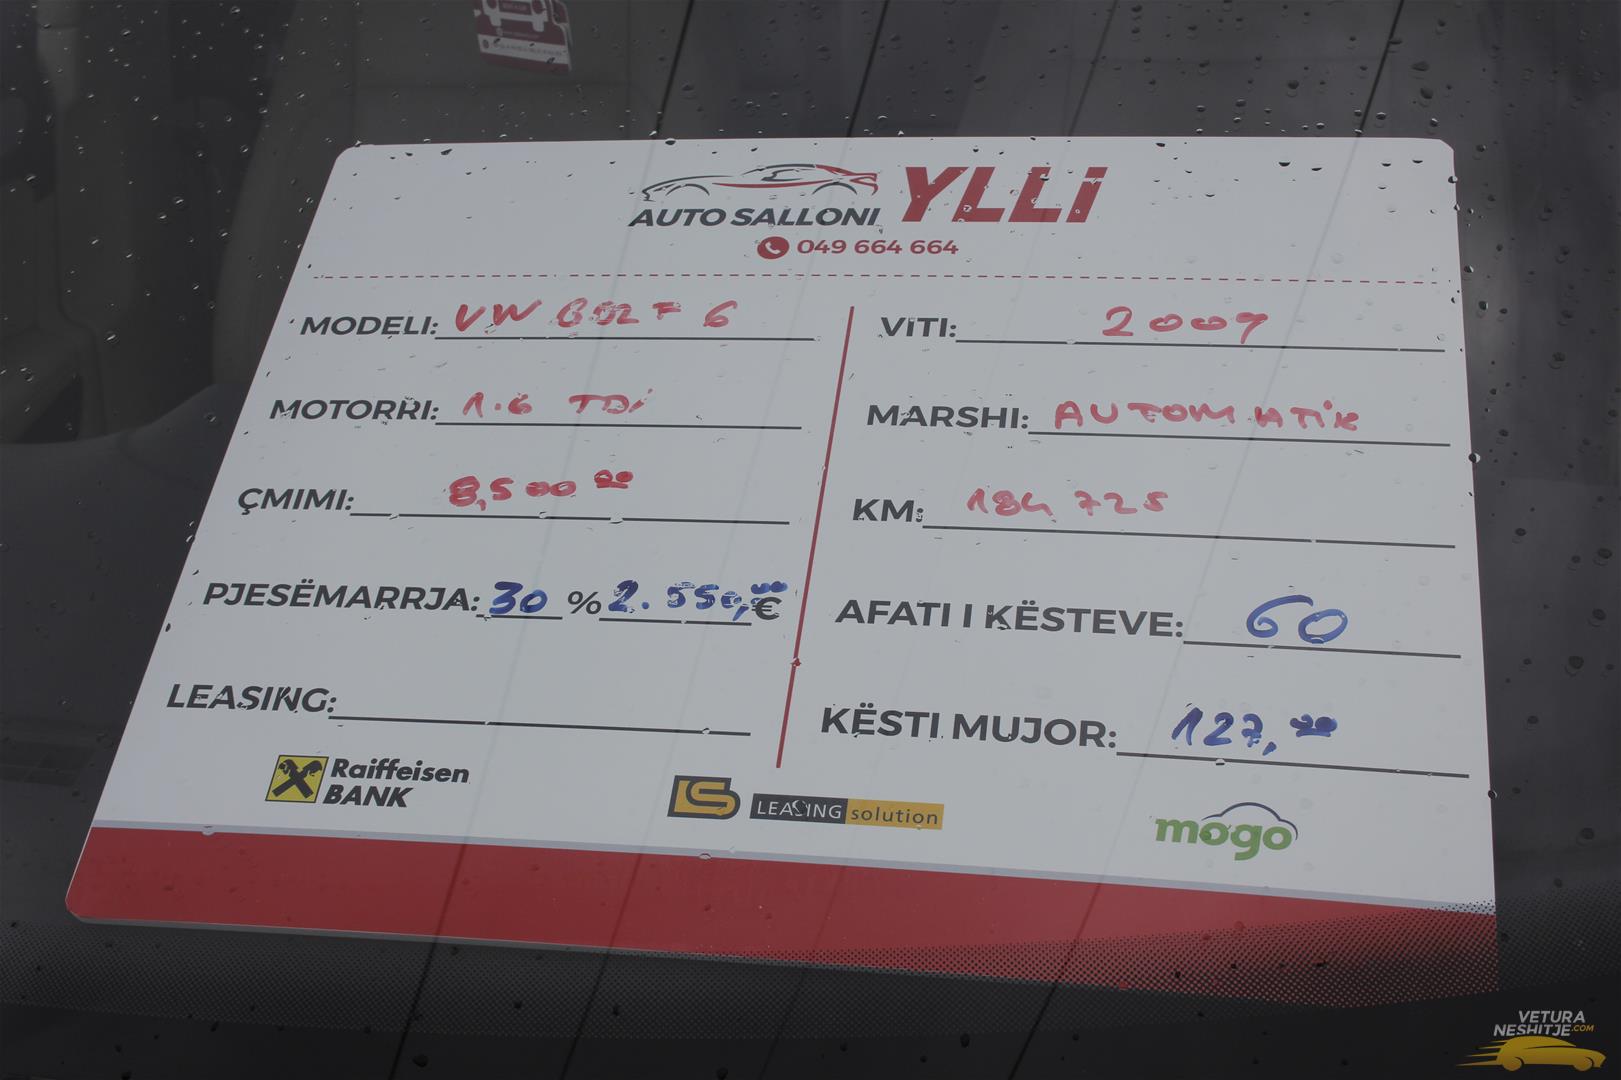 AUTO SALLONI YLLi
049 664 664
MODELI: VW GOLF 6
VITI: 2009
MOTORRI: 1.6 TDi
MARSHI: AUTOMATIK
ÇMIMI: 8,500 00
KM: 184 725
PJESËMARRJA: 30 % 2.550,00 €
AFATI I KËSTEVE: 60
LEASING:
KËSTI MUJOR: 127,00
Raiffeisen
BANK
LS LEASING solution
mogo
VETURA
NESHITJE.COM